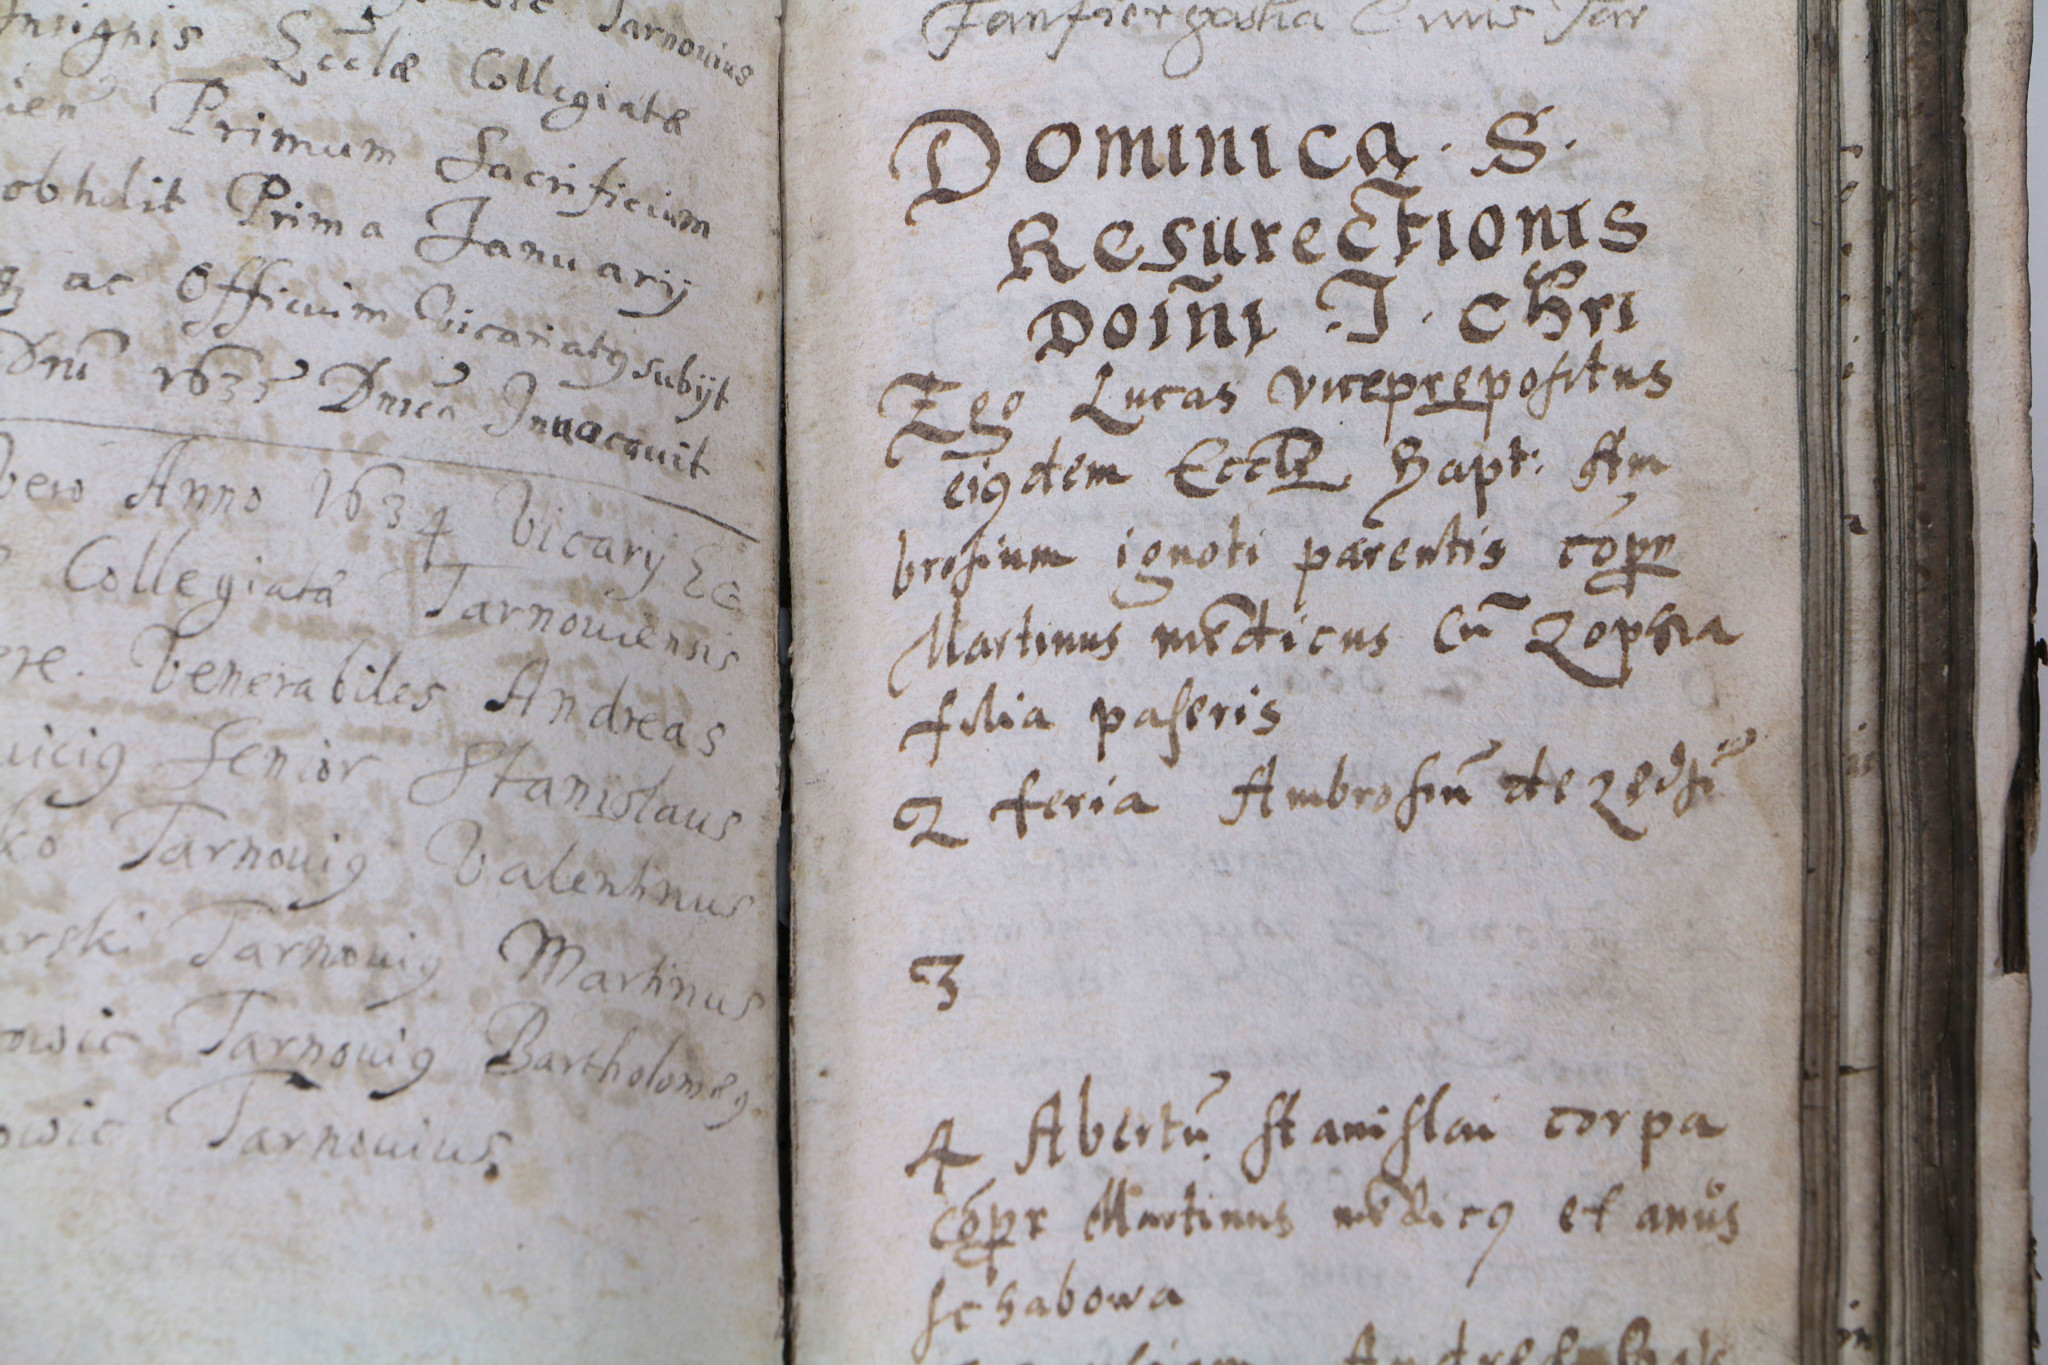 Tarnouius
Insignis Eccłæ Collegiatæ
Primum Sacrificium
obtulit Prima Januarij
ac Officium Vicariatꝰ subijt
Dnī 1635 Dnica Inuocauit
vero Anno 1634 Vicarij Ec
Collegiatæ Tarnouiensis
Venerabiles Andreas
Senior Stanislaus
Tarnouiꝰ Valentinus
Tarnouiꝰ Martinus
Tarnouiꝰ Bartholomeꝰ
Tarnouius.
Dominica. S.
Resurectionis
Doīni .J. Chri
Ego Lucas vicеprepositus
eiꝰdem Eccłe Bapt: Am
brosium ignoti parentis cōpr
Martinus medicus Cū Zophia
filia paseris
2 feria Ambrosiū de
3
4 Abertū Stanislai corpa
cōpr Martinus medicꝰ et
schabowa